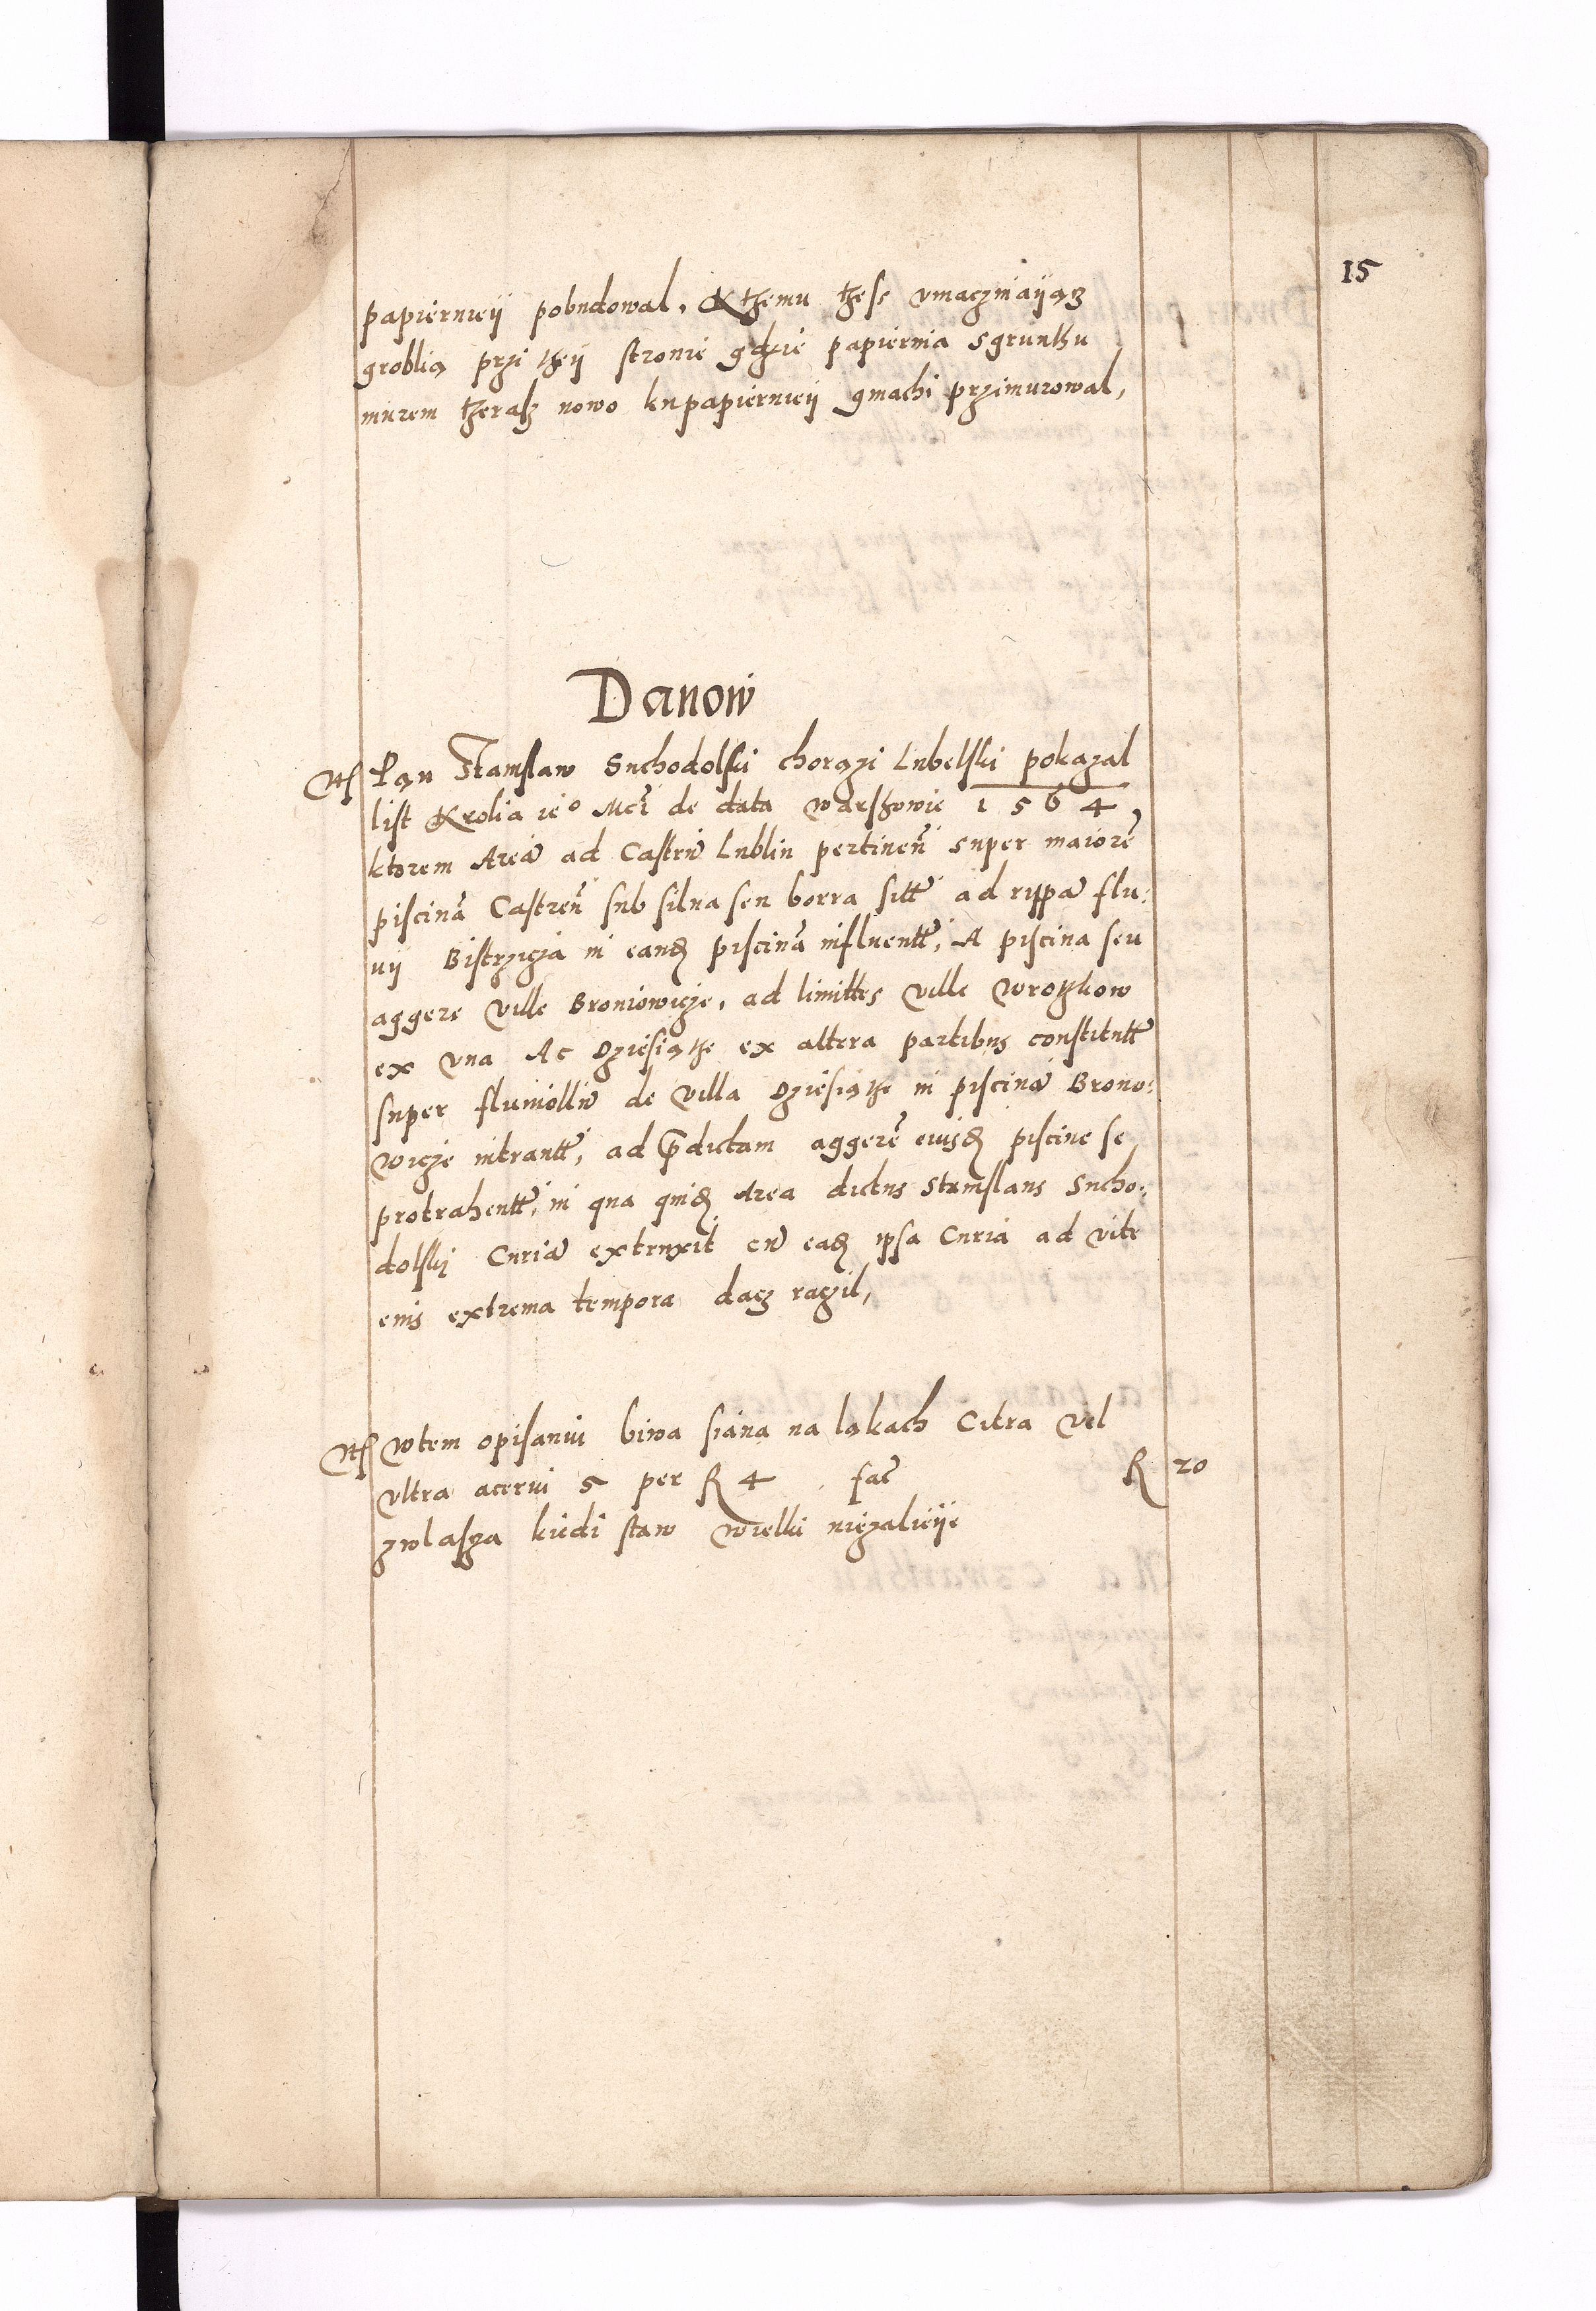 15
papiernieÿ pobudowal, Kthemu thess vmaczniaiącz
groblią przi theÿ stronie gdzie papiernia sgrunthu
murem theraz nowo kupapierniey gmachi przimurowal,
Danow
Nß Pan Stanislaw Suchodolski chorązi Lubelski pokazal
list Krolia ie° Mcꝭ de data warszowie 1564,
ktorem Areā ad Castrū Lublin pertinen̄ super maiorē
piscinā Castren̄ sub silua seu borra sitt̄ ad rippā flu:
uÿ Bistrzicza in eandꝫ piscinā influentt̄, A piscina seu
aggere ville Broniowicze, ad limittes ville wrotkow
ex vna Ac Dziesiąthe ex altera partibus constitutt̄
super fluuiollū de villa Dziesiąthe in piscinā Brono:
wicze intrantt̄, ad p̄dictam aggerē eiusdꝫ piscine se
protrahentt̄, in qua quidꝫ Area dictus Stanislaus Sucho:
dolskj Curiā extruxit cū eadꝫ ipsa Curia ad vite
eius extrema tempora dacz raczil,
Nß wtem opisaniu biwa siana na ląkach Citra vel
vltra acerui 5 per R 4 fac̄ R 20
zwlasza kiedi staw wielki niezalieÿe